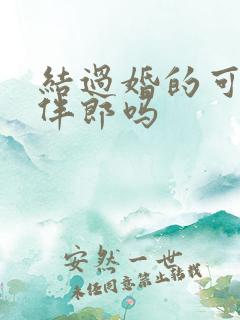 結過婚的可
伴郎吗
安然一世
未经同意禁止转载